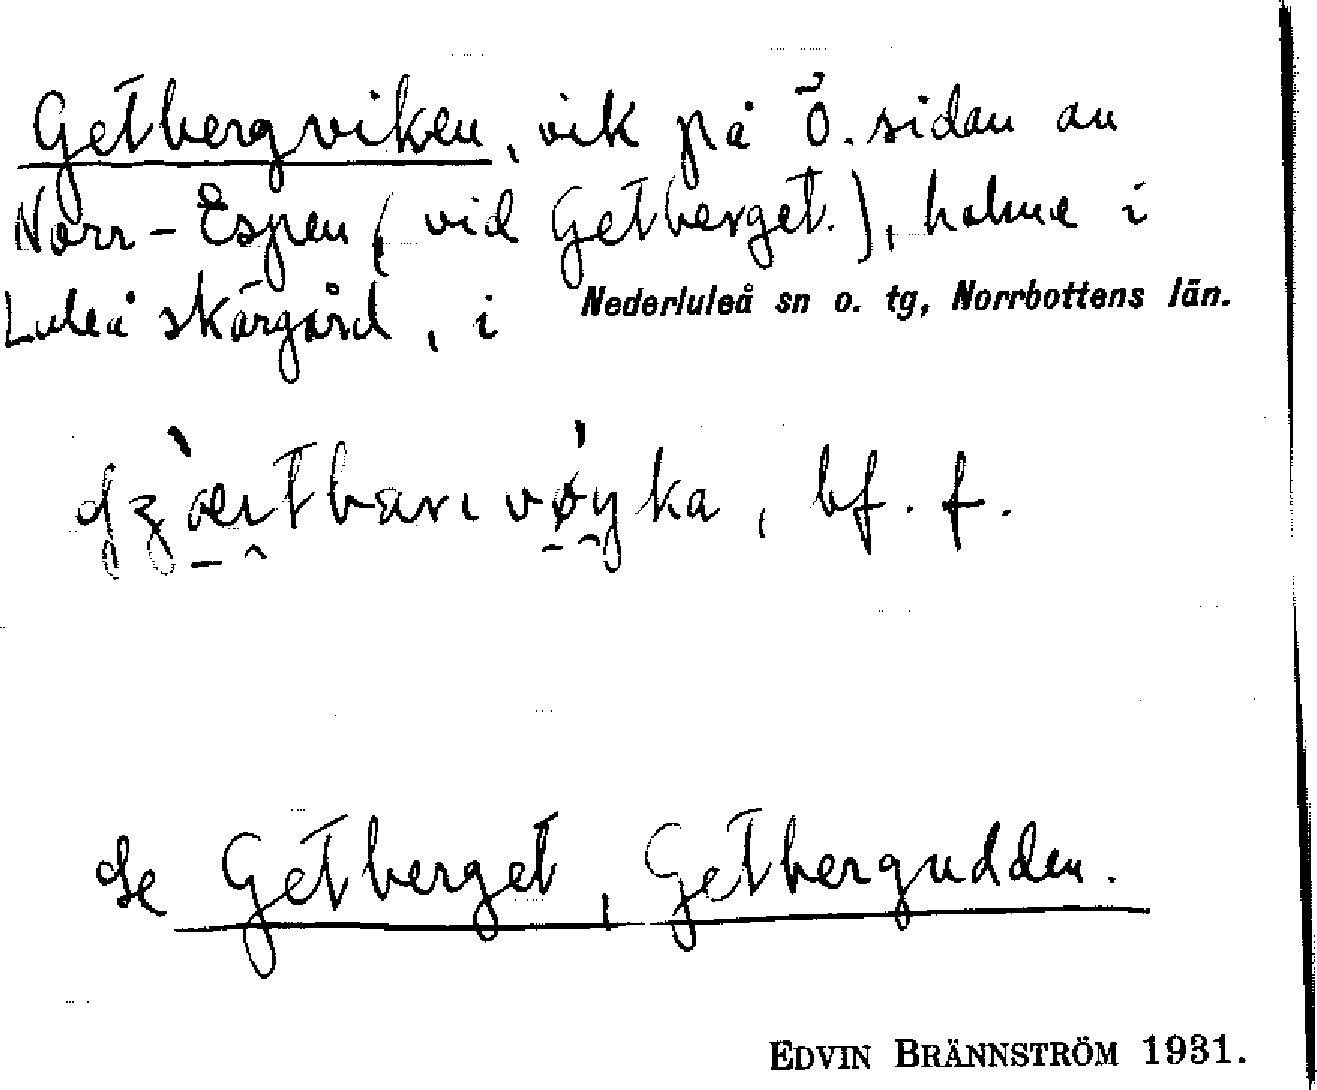 Getbergviken, vik på Ö. sidan av
Norr-Espen (vid Getberget.), holme i
Luleå skärgård, i Nederluleå sn o. tg, Norrbottens län.
bf. f.
Se Getberget, Getbergudden.
EDVIN BRÄNNSTRÖM 1931.